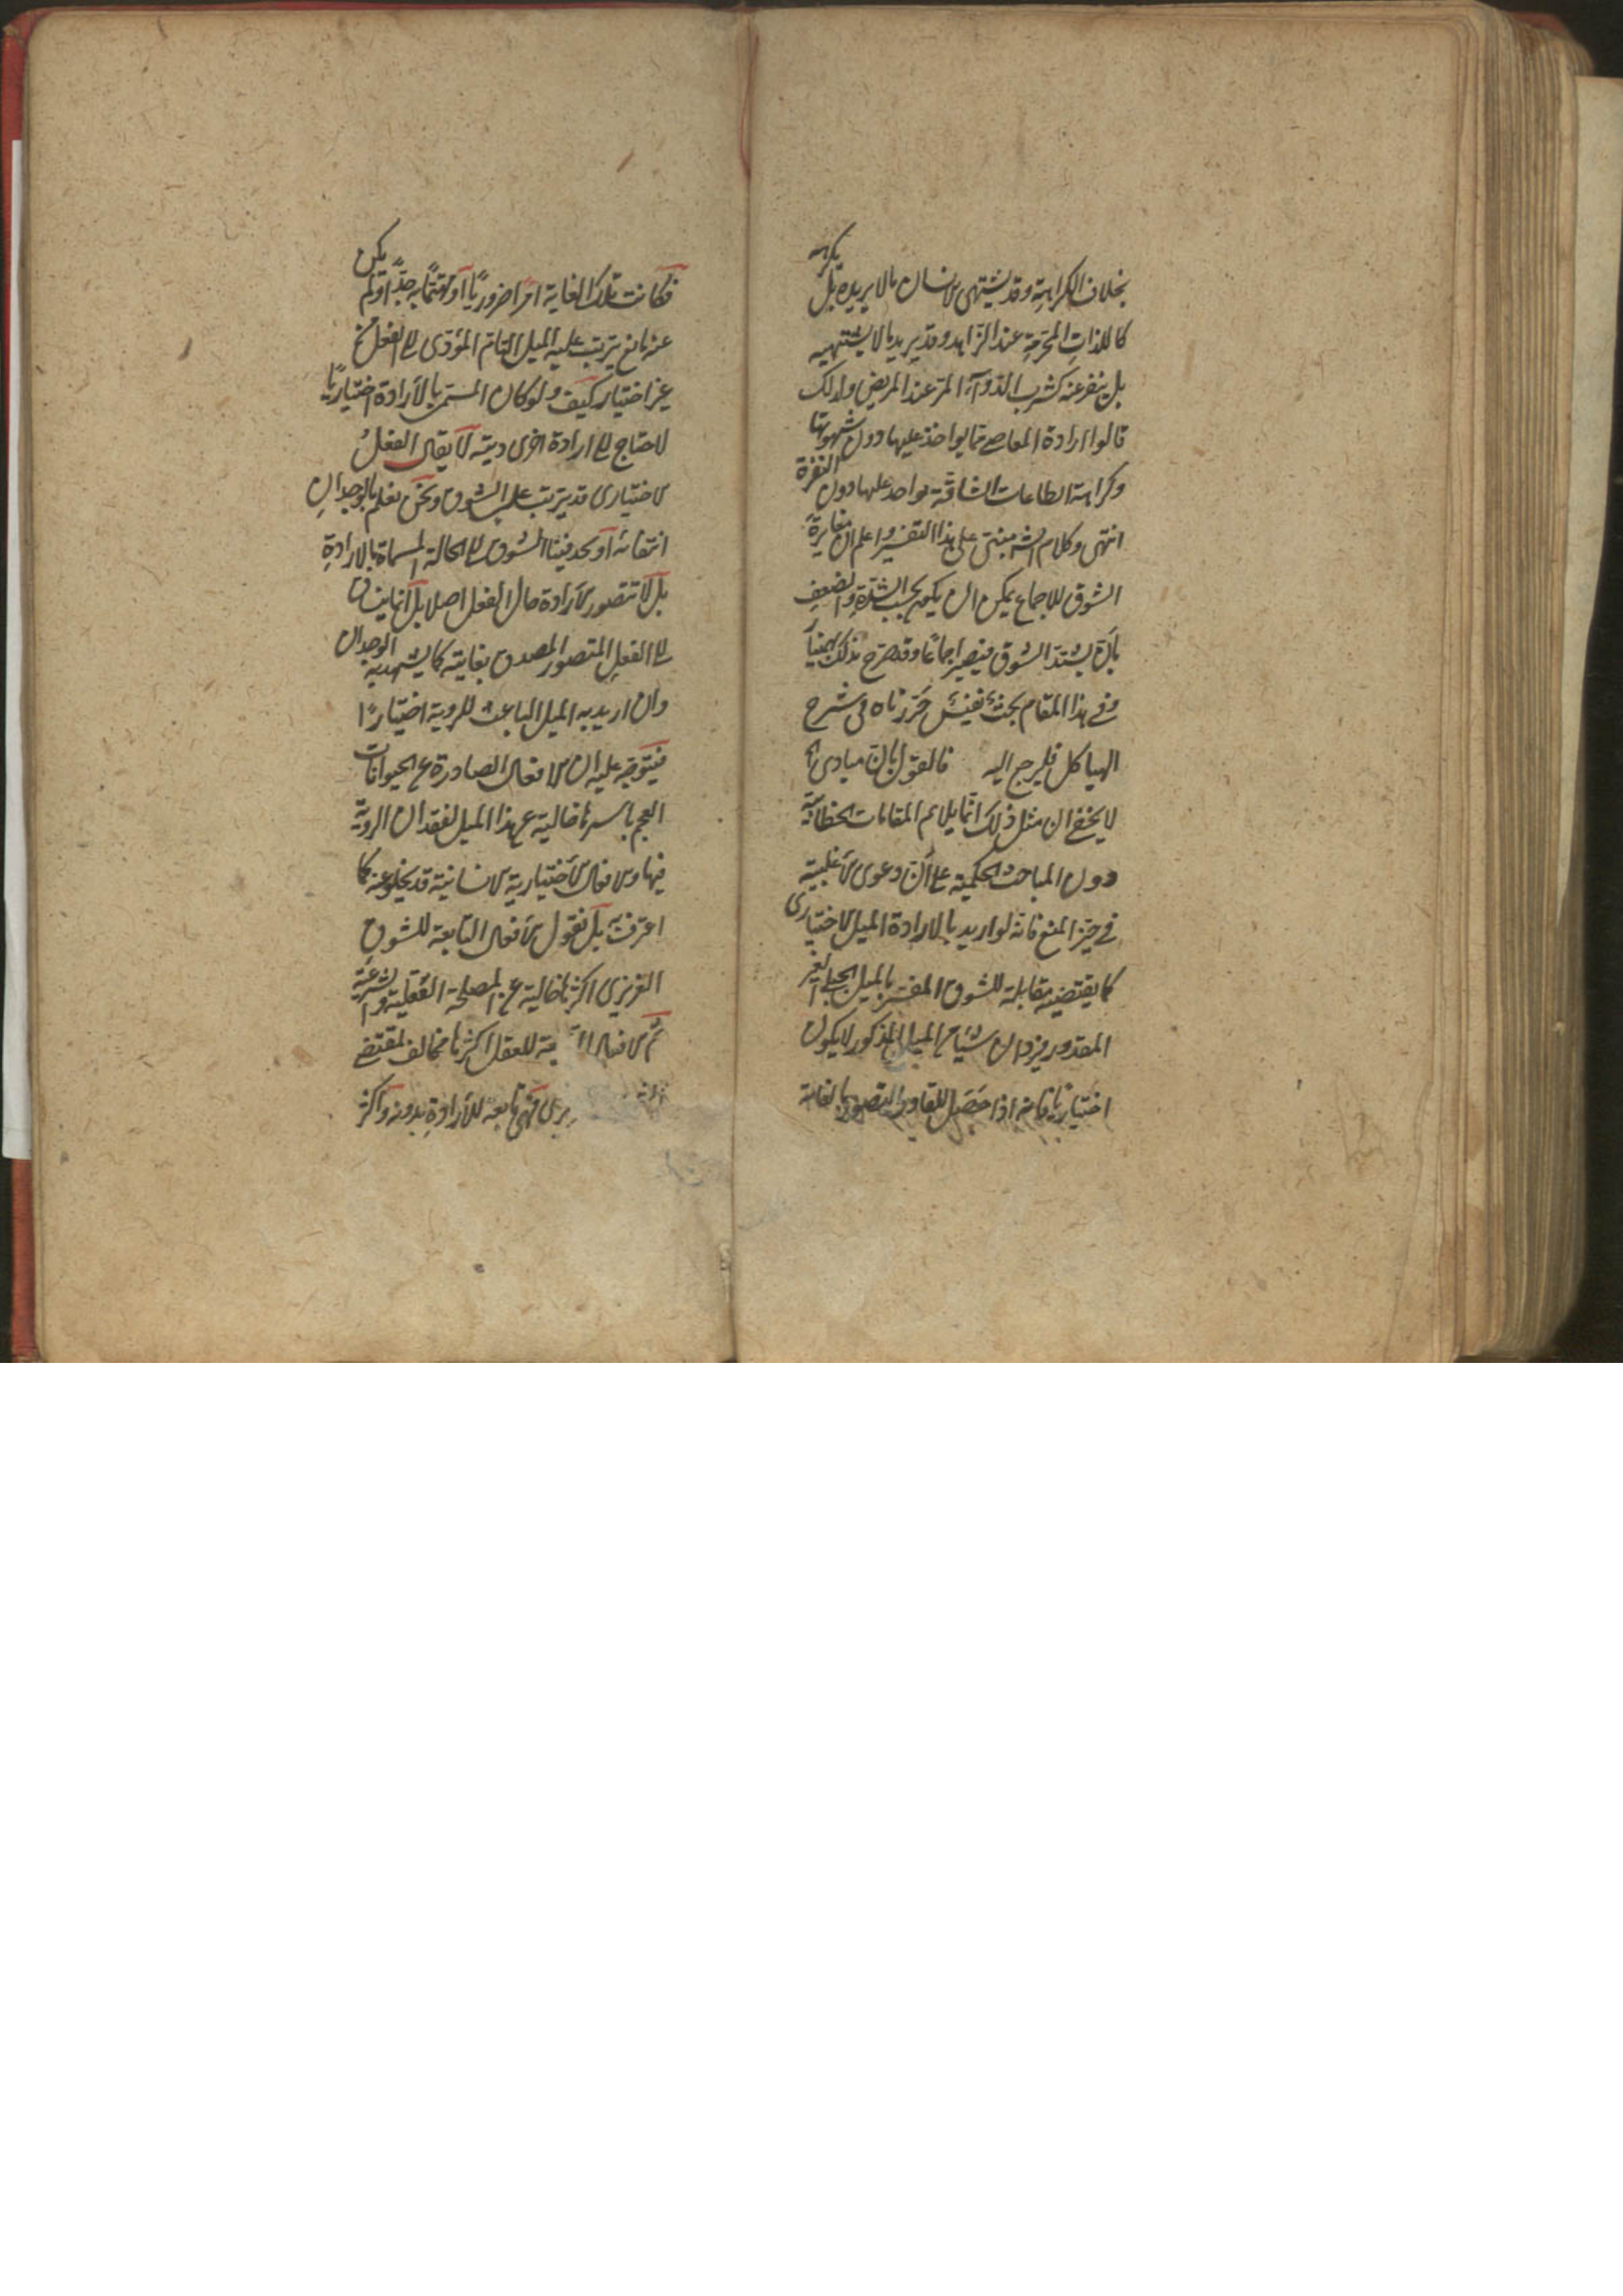 بخلاف الكراهة وقد يشتهى الانسان ما لا يريده بل يكرهه
كاللذات المحرمة عند الزاهد وقد يريد ما لا يشتهيه
بل ينفر عنه كشرب الدوآء المر عند المريض ولذلك
قالوا ارادة المعاصے مما يواخذ عليها دون شهوتها
وكراهة الطاعات الشاقة يواخذ عليها دون النفرة
انتهى وكلام الش مبنى على هذا التفسير واعلم ان مغايرة
الشوق للاجماع يمكن ان يكون بحسب الشدة والضعف
بان يشتد الشوق فيصير اجماعا وقد صرح بذلك بهمنيار
وفے هذا المقام بحث نفيس حررناه فى شرح
الهياكل فليرجع اليه فالقول بان مبادى اه
لا يخفے ان مثل ذلك انما يلائم المقامات الخطابية
دون المباحث الحكمية علے ان دعوى الاغلبية
فے حيز المنع فانه لو اريد بالارادة الميل الاختيارى
كما يقتضيه مقابلة للشوق المفسر بالميل الجبلے الغير
المقدور يرد ان شيئا من الميل المذكور لا يكون
اختياريا فانه اذا حصل للقادر التصور بالغاية
فكانت تلك الغاية امرا ضروريا او مهتما به جدا ولم يكن
عنه مانع يترتب عليه الميل التام المؤدى الے الفعل من
غير اختيار كيف ولو كان المسمى بالارادة اختياريا
لاحتاج الے ارادة اخرى لا يقال الفعل
الاختيارى قد يترتب على الشوق ونحن نعلم بالوجدان
انتفائه او يحد فينا الشوق الے الحالة المسماة بالارادة
بل لا تتصور الارادة حال الفعل اصلا بل انما
الے الفعل المتصور المصدق بغايته كما يشهد به الوجدان
وان اريد به الميل الباعث للروية اختيارا
فيتوجه عليه ان الافعال الصادرة عن الحيوانات
العجم باسرها خالية عن هذا الميل لفقدان الروية
فيها والافعال الاختيارية الانسانية قد يخلو عنه كما
اعترفت به بل نقول الافعال التابعة للشوق
الغريزى اكثرها خالية عن المصلحة العقلية والشرعية
ثم الافعال بعة للعقل اكثرها مخالف لمقتضے
فهى تابعة للارادة بدونه واكثر